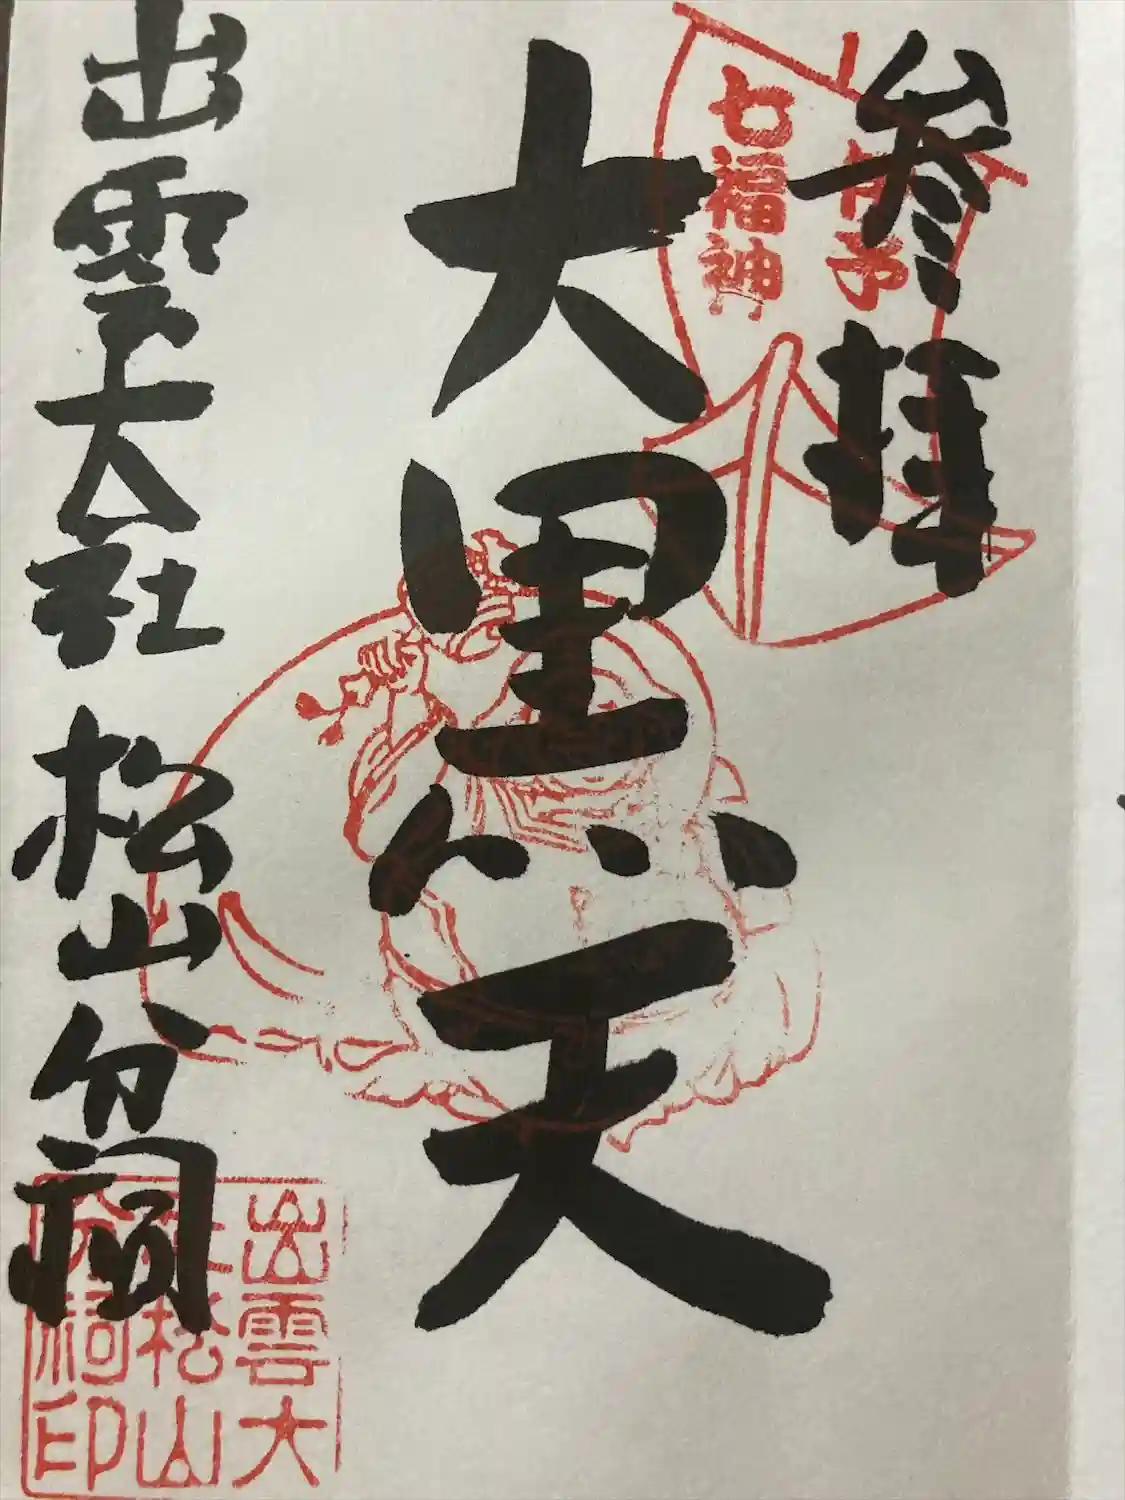 参拝
伊予
七福神
大黒天
出雲大社 松山分祠
出雲大
社松山
分祠印